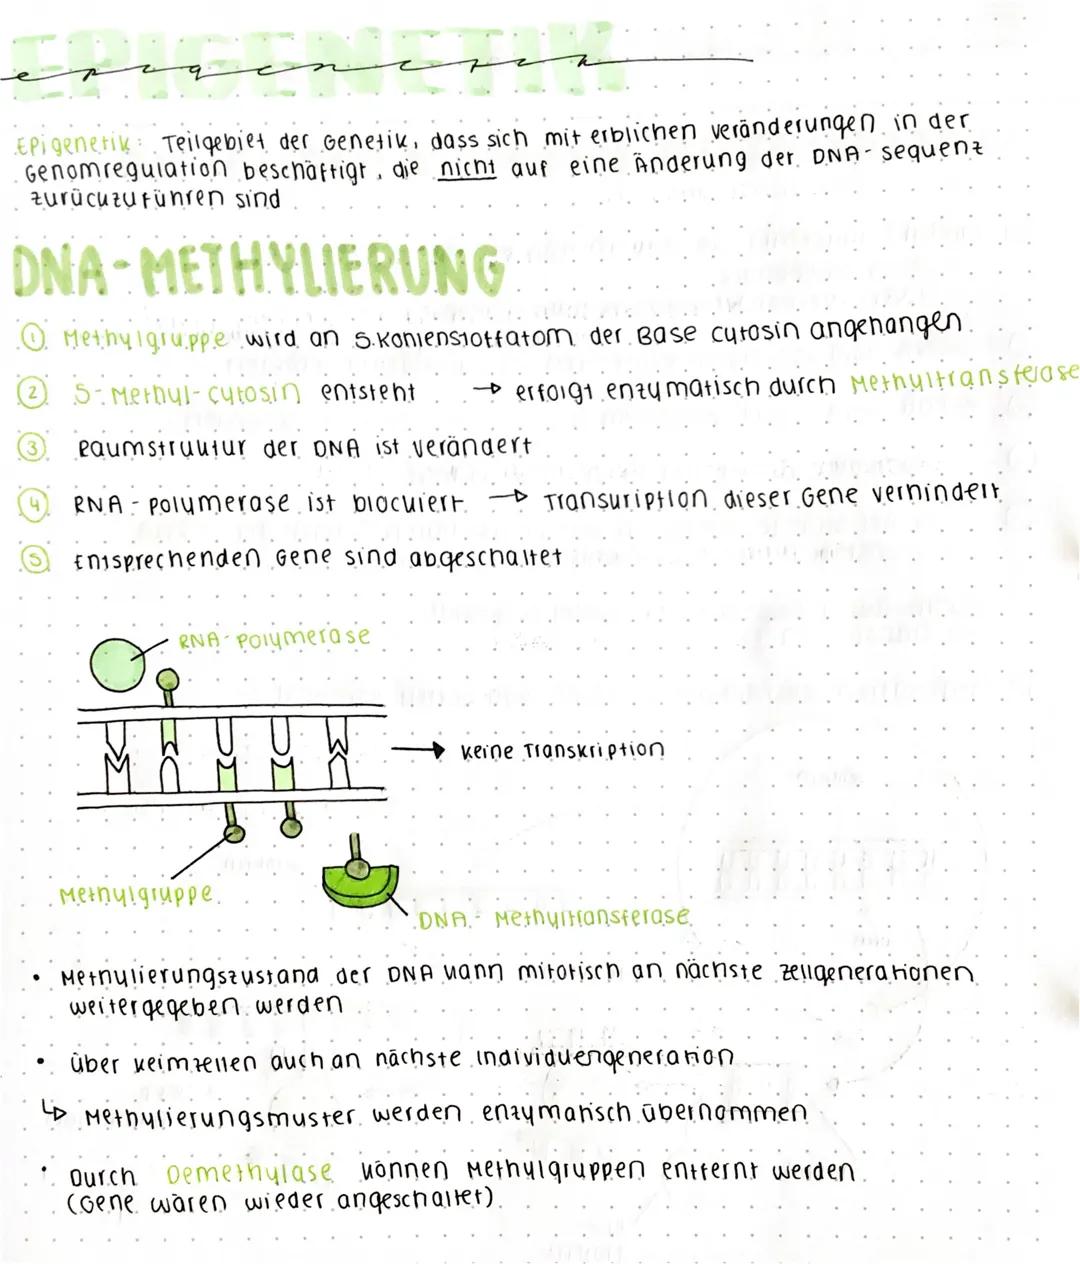 EPIGENETIK
epigenetik
Epigenetik: Teilgebiet der Genetik, dass sich mit erblichen veränderungen in der
Genomregulation beschäftigt, die nicht auf eine Änderung der DNA-sequenz
zurückzuführen sind
DNA-METHYLIERUNG
1 Methylgruppe wird an 5.Kohlenstoffatom der Base cytosin angehangen
2 5-Methyl-cytosin entsteht → erfolgt enzymatisch durch Methyltransferase
3 Raumstruktur der DNA ist verändert
4 RNA-polymerase ist blockiert → Transkription dieser Gene verhindert
5 Entsprechenden Gene sind abgeschaltet
RNA-Polymerase
keine Transkription
Methylgruppe
DNA-Methyltransferase
• Methylierungszustand der DNA kann mitotisch an nächste zellgenerationen
weitergegeben werden
• über keimzellen auch an nächste Individuengeneration
↳ Methylierungsmuster werden enzymatisch übernommen
• Durch Demethylase können Methylgruppen entfernt werden
(Gene wären wieder angeschaltet)